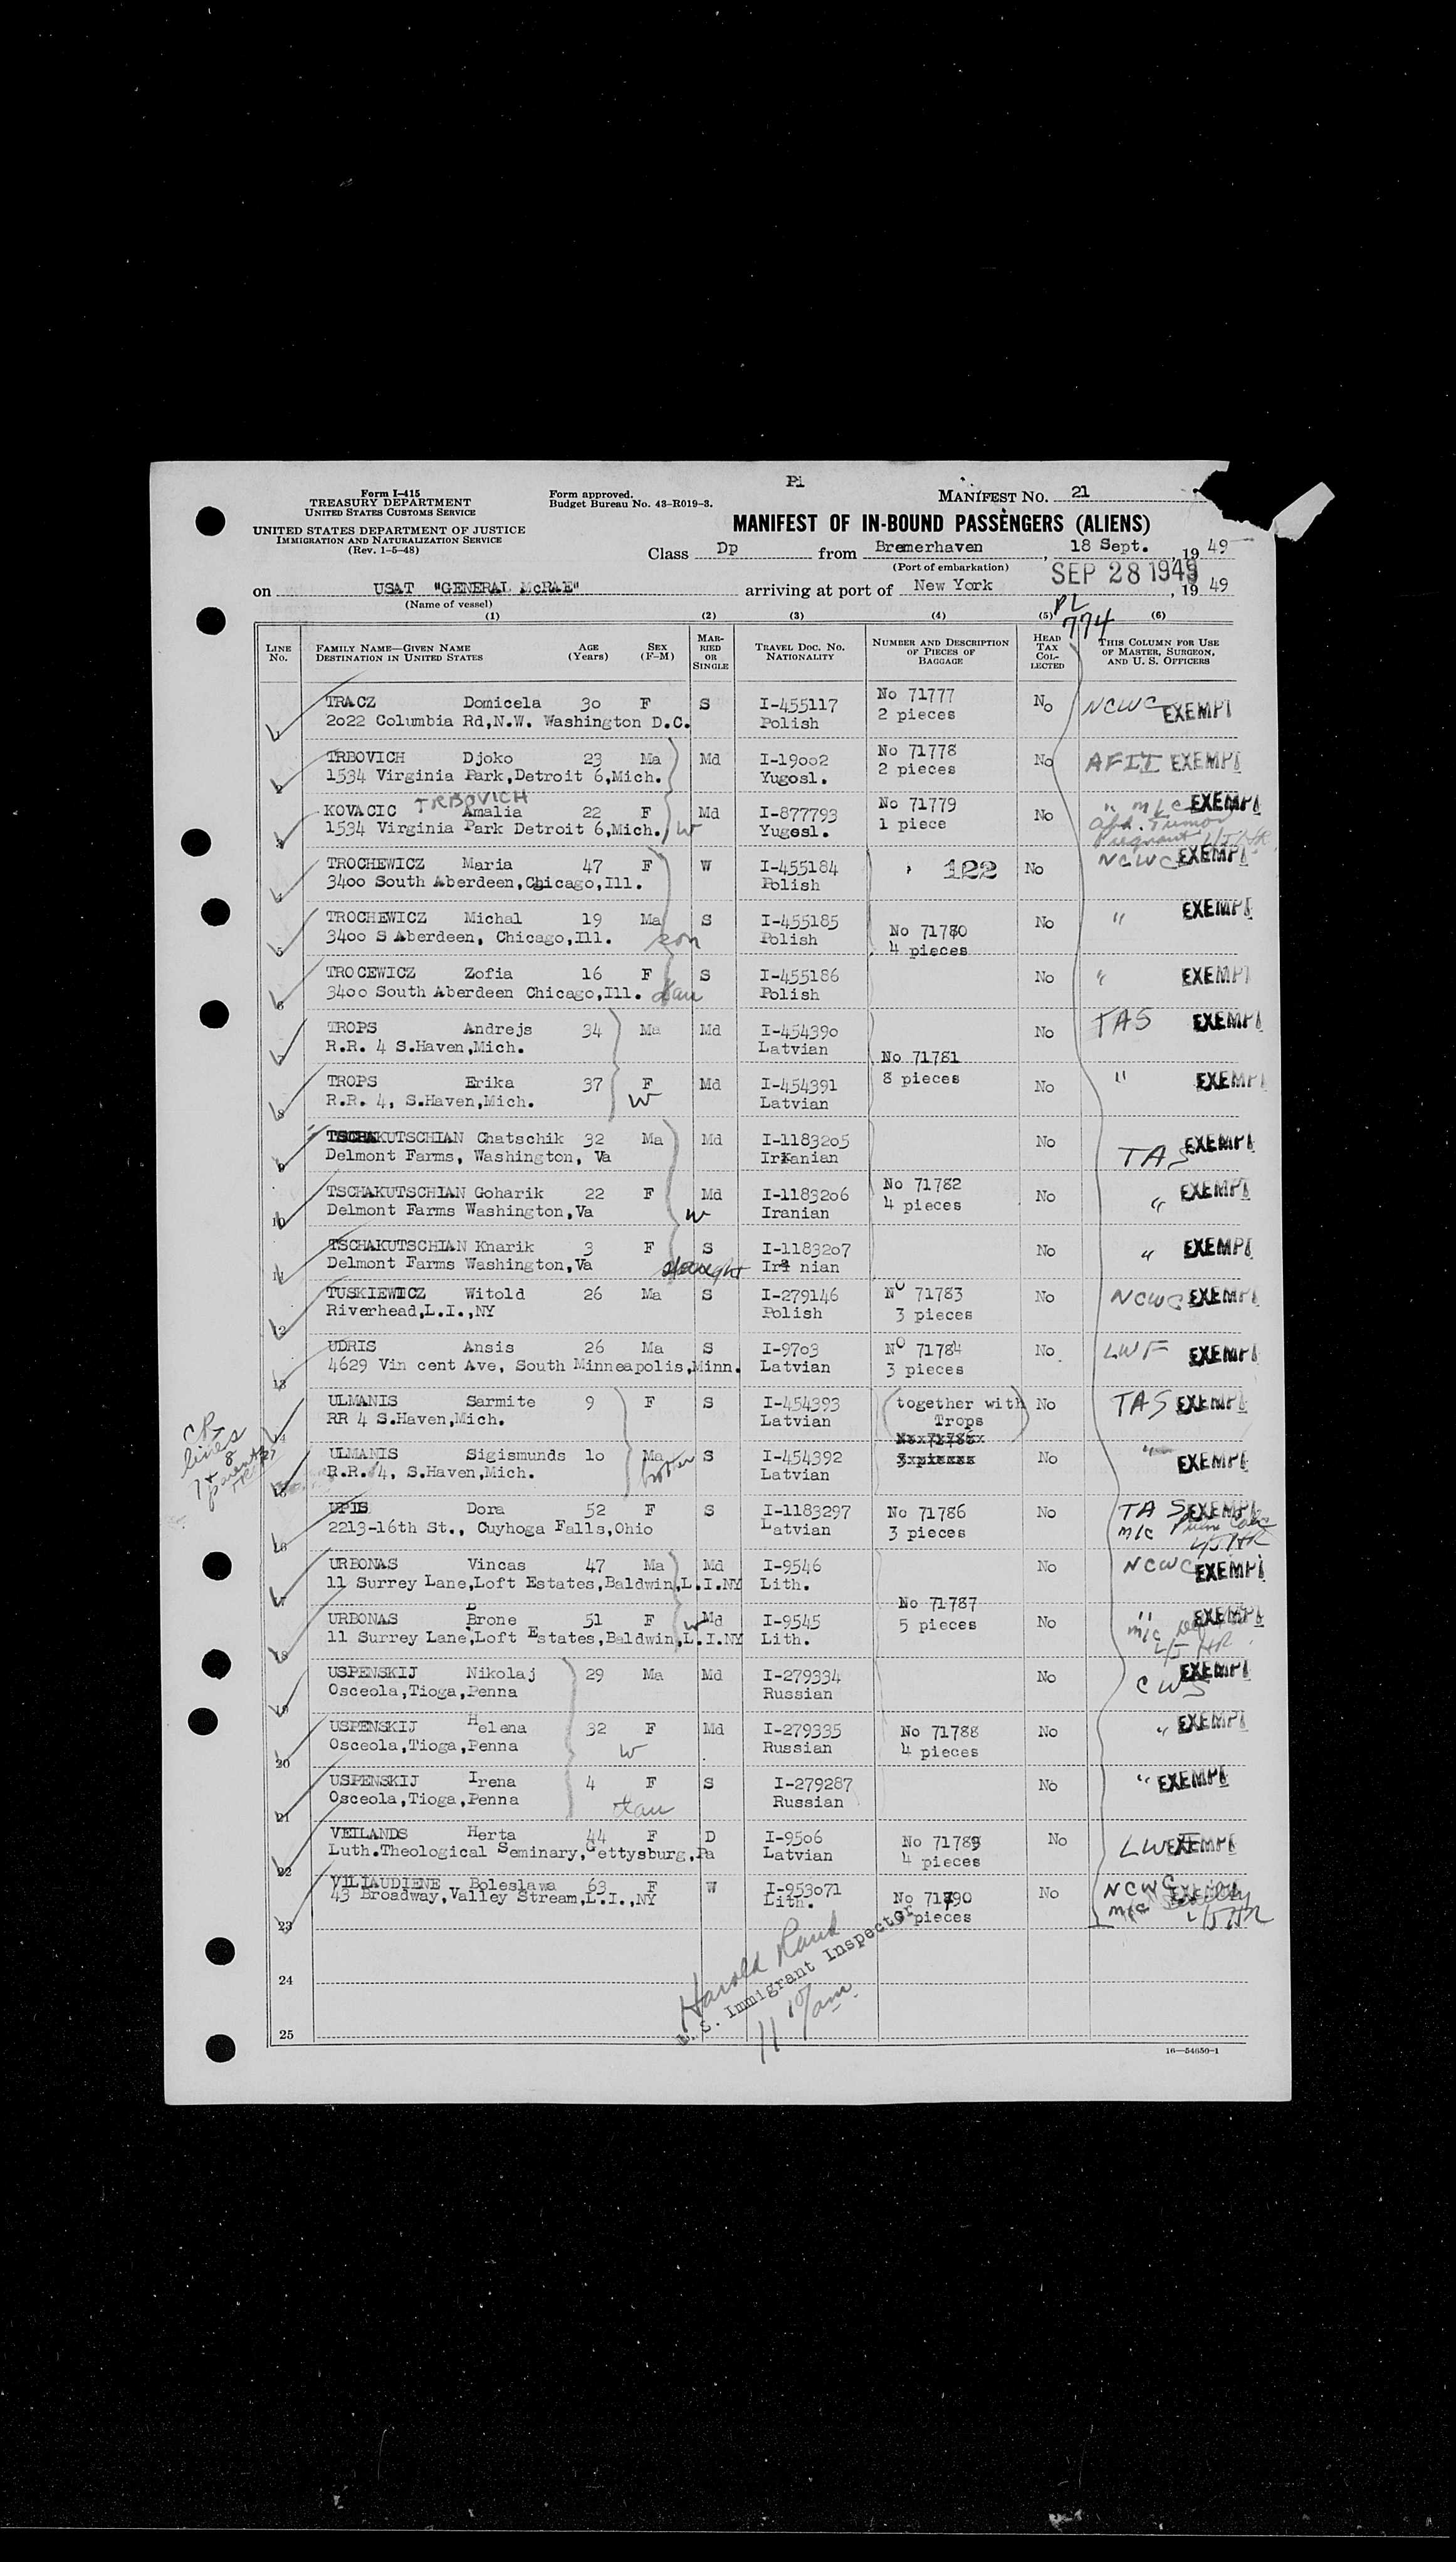 Pl
Form I-415
TREASURY DEPARTMENT
UNITED STATES CUSTOMS SERVICE
UNITED STATES DEPARTMENT OF JUSTICE
IMMIGRATION AND NATURALIZATION SERVICE
(Rev. 1-5-48)
Form approved.
Budget Bureau No. 43-R019-3.
MANIFEST NO. 21
MANIFEST OF IN-BOUND PASSENGERS (ALIENS)
Class Dp from Bremerhaven, 18 Sept., 1949
(Port of embarkation)
SEP 28 1949
on USAT "GENERAL McRAE" arriving at port of New York, 1949
(Name of vessel)
PL
774
(1) (2) (3) (4) (5) (6)
LINE No. FAMILY NAME—GIVEN NAME DESTINATION IN UNITED STATES AGE (Years) SEX (F-M) MARRIED OR SINGLE TRAVEL DOC. NO. NATIONALITY NUMBER AND DESCRIPTION OF PIECES OF BAGGAGE HEAD TAX COLLECTED THIS COLUMN FOR USE OF MASTER, SURGEON, AND U. S. OFFICERS
1 TRACZ Domicela 30 F S I-455117 No 71777 No NCWC EXEMPT
2022 Columbia Rd,N.W. Washington D.C. Polish 2 pieces
2 TRBOVICH Djoko 23 Ma Md I-19002 No 71778 No AFII EXEMPT
1534 Virginia Park,Detroit 6,Mich. Yugosl. 2 pieces
TRBOVICH
3 KOVACIC Amalia 22 F Md I-877793 No 71779 No " M/C EXEMPT
1534 Virginia Park Detroit 6,Mich. W Yugosl. 1 piece
abd. Tumor
Pregnant L/S HR
4 TROCHEWICZ Maria 47 F W I-455184 122 No NCWC EXEMPT
3400 South Aberdeen,Chicago,Ill. Polish
5 TROCHEWICZ Michal 19 Ma S I-455185 No 71780 No " EXEMPT
3400 S Aberdeen, Chicago,Ill. son Polish 4 pieces
6 TROCEWICZ Zofia 16 F S I-455186 No " EXEMPT
3400 South Aberdeen Chicago,Ill. dau Polish
7 TROPS Andrejs 34 Ma Md I-454390 No TAS EXEMPT
R.R. 4 S.Haven,Mich. Latvian
No 71781
8 TROPS Erika 37 F Md I-454391 8 pieces No " EXEMPT
R.R. 4, S.Haven,Mich. W Latvian
9 TSCHAKUTSCHIAN Chatschik 32 Ma Md I-1183205 No TAS EXEMPT
Delmont Farms, Washington, Va Iranian
10 TSCHAKUTSCHIAN Goharik 22 F Md I-1183206 No 71782 No " EXEMPT
Delmont Farms Washington,Va W Iranian 4 pieces
11 TSCHAKUTSCHIAN Knarik 3 F S I-1183207 No " EXEMPT
Delmont Farms Washington,Va Ira nian
12 TUSKIEWICZ Witold 26 Ma S I-279146 No 71783 No NCWC EXEMPT
Riverhead,L.I.,NY Polish 3 pieces
13 UDRIS Ansis 26 Ma S I-9703 No 71784 No LWF EXEMPT
4629 Vin cent Ave, South Minneapolis,Minn. Latvian 3 pieces
14 ULMANIS Sarmite 9 F S I-454393 (together with No TAS EXEMPT
RR 4 S.Haven,Mich. Latvian Trops)
CR
lines
7 & 8
15 ULMANIS Sigismunds 10 Ma S I-454392 No " EXEMPT
R.R. 4, S.Haven,Mich. brother Latvian
16 UPIS Dora 52 F S I-1183297 No 71786 No TAS EXEMPT
2213-16th St., Cuyhoga Falls,Ohio Latvian 3 pieces M/C L/S HR
17 URBONAS Vincas 47 Ma Md I-9546 No NCWC EXEMPT
11 Surrey Lane,Loft Estates,Baldwin,L.I.NY Lith.
No 71787
18 URBONAS Brone 51 F W Md I-9545 5 pieces No " EXEMPT
11 Surrey Lane,Loft Estates,Baldwin,L.I.NY Lith. M/C L/S HR
19 USPENSKIJ Nikolaj 29 Ma Md I-279334 No CWS EXEMPT
Osceola,Tioga,Penna Russian
20 USPENSKIJ Helena 32 F Md I-279335 No 71788 No " EXEMPT
Osceola,Tioga,Penna W Russian 4 pieces
21 USPENSKIJ Irena 4 F S I-279287 No " EXEMPT
Osceola,Tioga,Penna dau Russian
22 VEILANDS Herta 44 F D I-9506 No 71789 No LWF EXEMPT
Luth.Theological Seminary,Gettysburg,Pa Latvian 4 pieces
23 VILIAUDIENE Boleslawa 63 F W I-953071 No 71790 No NCWC EXEMPT
43 Broadway,Valley Stream,L.I.,NY Lith. pieces M/C L/S HR
24
Harold Rand
U. S. Immigrant Inspector
11 10/am
25
16—54650-1